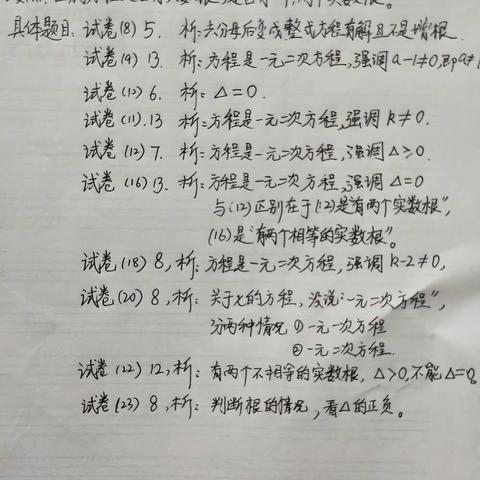 具体题目: 试卷(8) 5. 析:去分母后变成整式方程有解且不是增根.
试卷(9) 13. 析:方程是一元二次方程,强调a-1≠0,即a≠
试卷(10) 6. 析: △=0.
试卷(11).13 析:方程是一元二次方程,强调k≠0.
试卷(12) 7. 析:方程是一元二次方程,强调△≥0.
试卷(16) 13. 析:方程是一元二次方程,强调△=0
与(12)区别在于(12)是"有两个实数根",
(16)是"有两个相等的实数根"。
试卷(18) 8, 析:方程是一元二次方程,强调k-2≠0,
试卷(20) 8, 析: 关于x的方程, 没说"一元二次方程",
分两种情况 ①一元一次方程
②一元二次方程.
试卷(22) 12, 析: 有两个不相等的实数根, △>0,不能△=0。
试卷(23) 8, 析: 判断根的情况, 看△的正负。